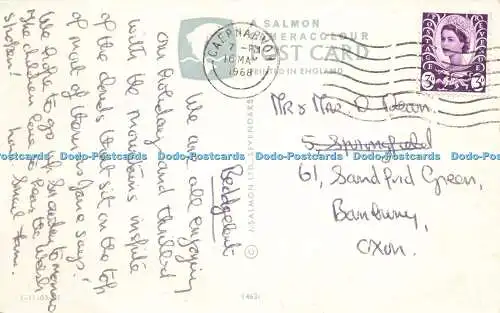 A SALMON
CAMERACOLOUR
POST CARD
PRINTED IN ENGLAND
CAERNARVON
7-PM
10 MAY
1968
POSTAGE
REVENUE
3D
Beddgelert
We are all enjoying
our holiday and thrilled
with the mountains inspite
of the clouds that sit on the top
of most of them, Jane says!
We hope to go up Snowdon tomorrow
The children love to hear the Welsh
spoken! Love
Mr & Mrs D. Dean,
5 Springfield
61, Sandford Green,
Banbury,
Oxon.
© J. SALMON LTD., SEVENOAKS
Postcards Dodo-Postcards Dodo-Postcards Dodo-Postcards Dodo-Postcards Dodo-Postcards Dodo